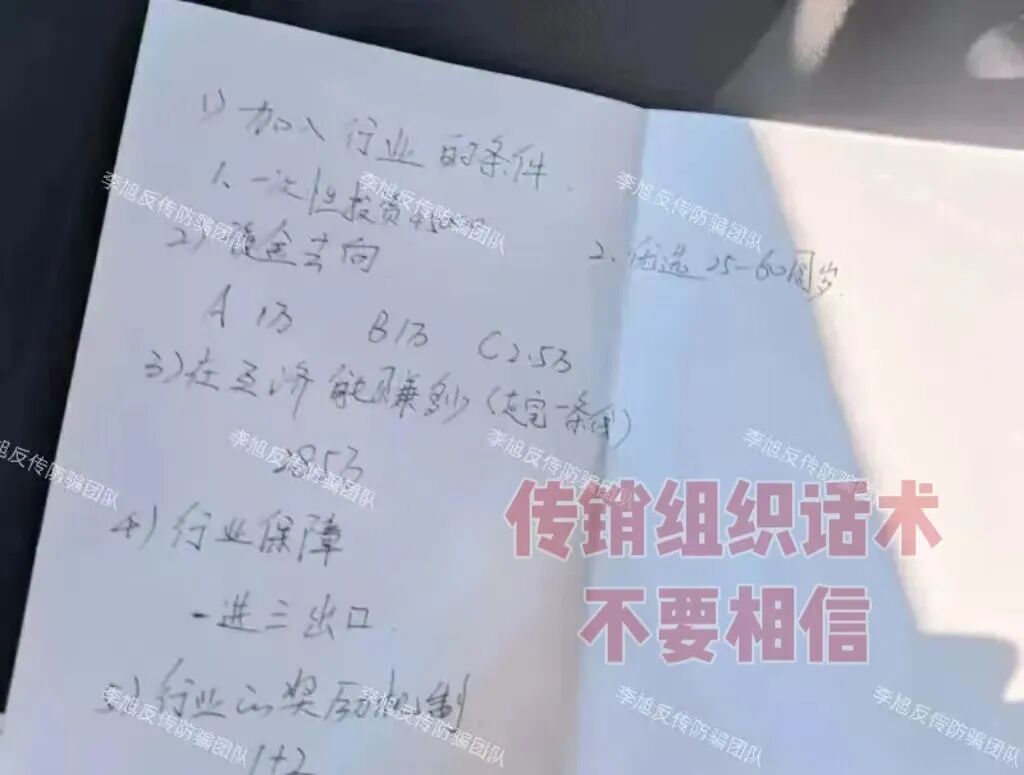 1) 加入行业的条件.
1、一次性投资4500
2. 优选 25-60周岁.
2) 资金去向
A 1万 B 1万 C 2.5万
3) 在互济能赚多少(走完一条线)
285万
4) 行业保障
一进三出口.
5) 行业的奖励机制
1+2
传销组织话术
不要相信
李旭反传防骗团队
李旭反传防骗团队
李旭反传防骗团队
李旭反传防骗团队
李旭反传防骗团队
李旭反传防骗团队
李旭反传防骗团队
李旭反传防骗团队
李旭反传防骗团队
李旭反传防骗团队
李旭反传防骗团队